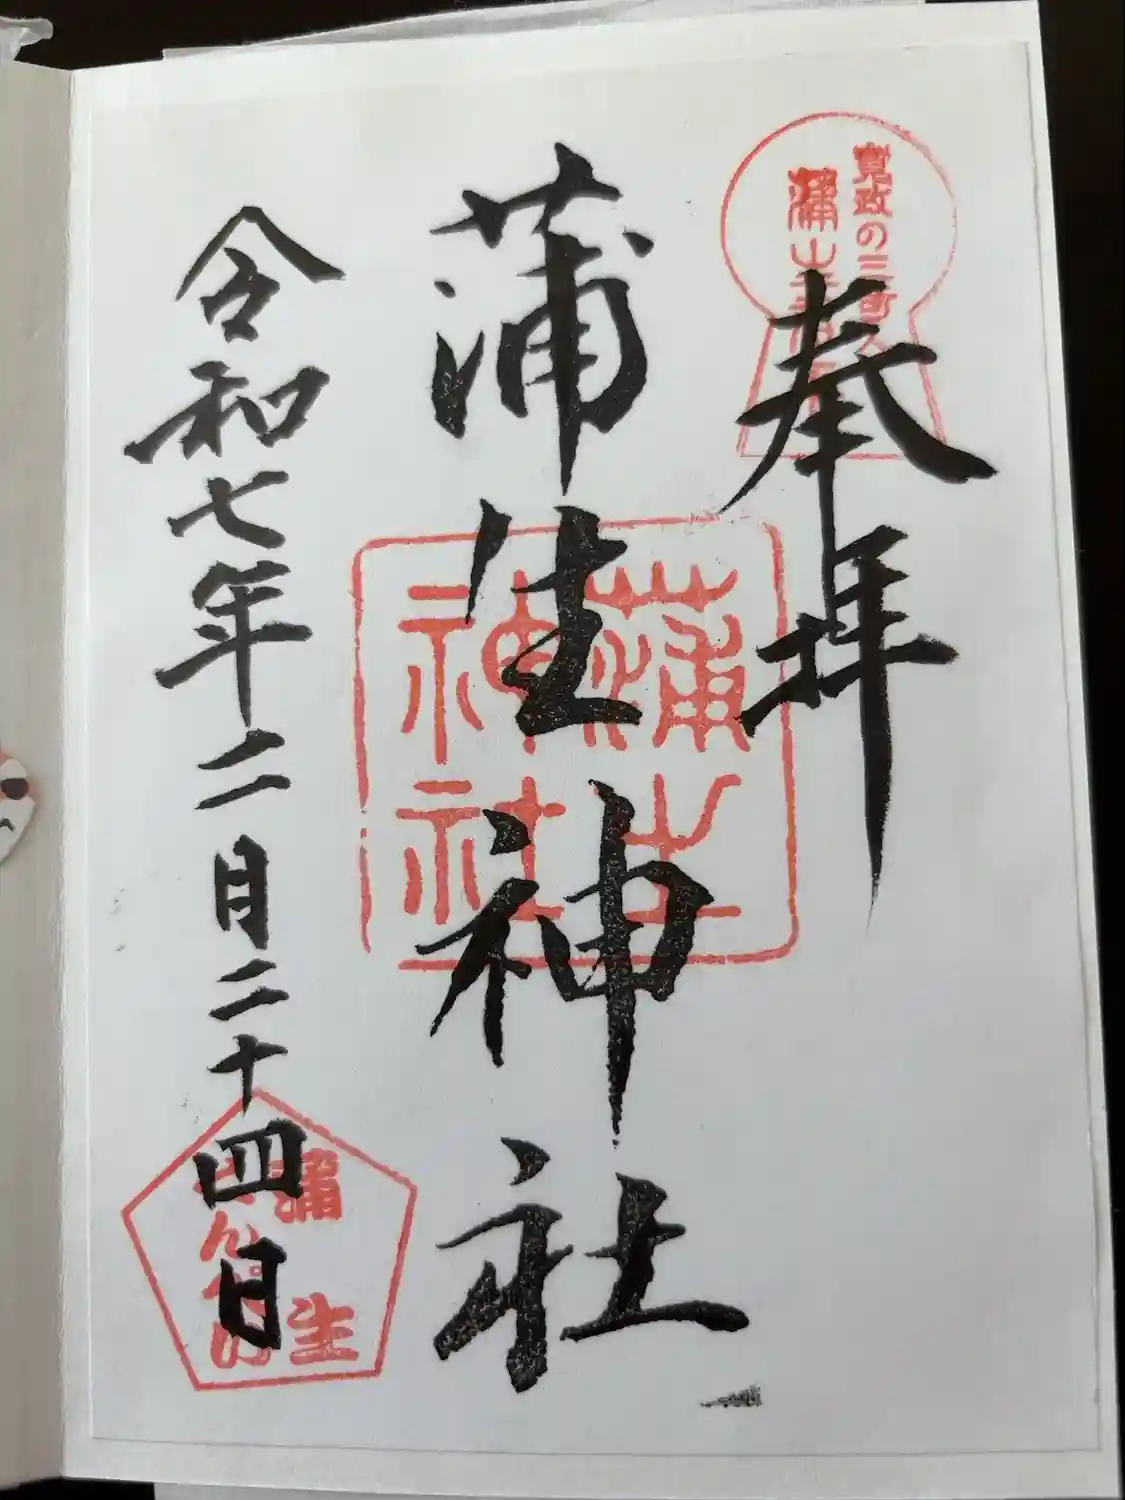 寛政の三奇人
蒲生君平
奉拝
蒲生神社
蒲生
神社
令和七年二月二十四日
蒲生
くんぺい